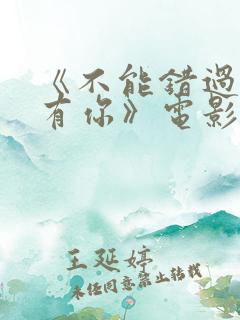 《不能错过
有你》电影
王延婷
未经同意禁止转载